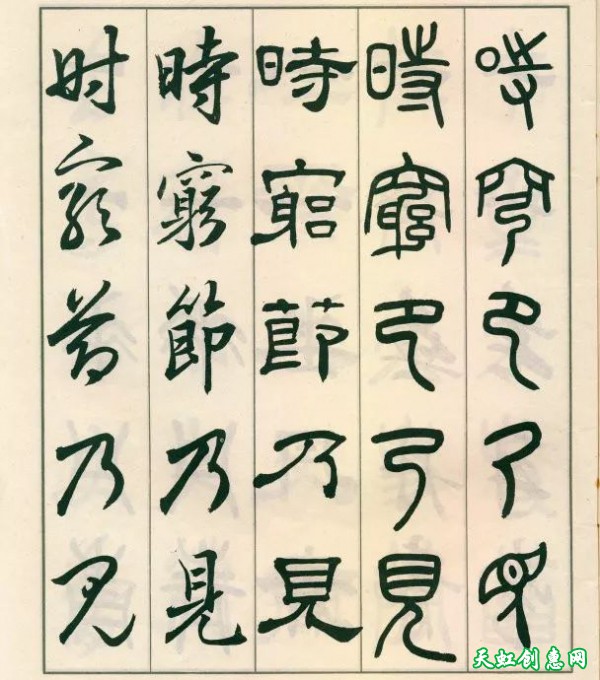 時窮節乃見
時窮節乃見
時窮節乃見
時窮節乃見
时窮節乃見
天虹创惠网